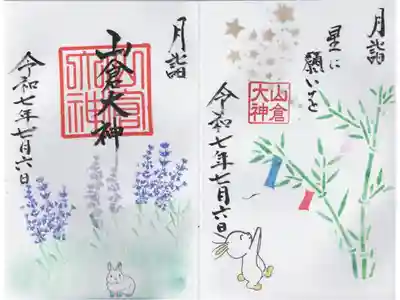 月詣
星に
願いを
山倉
大神
令和七年七月六日
月詣
山倉大神
山倉大神
令和七年七月六日